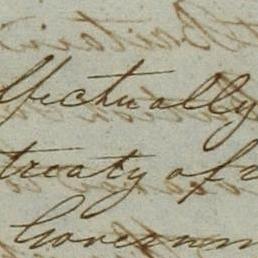 ffectually
treaty of
Governm